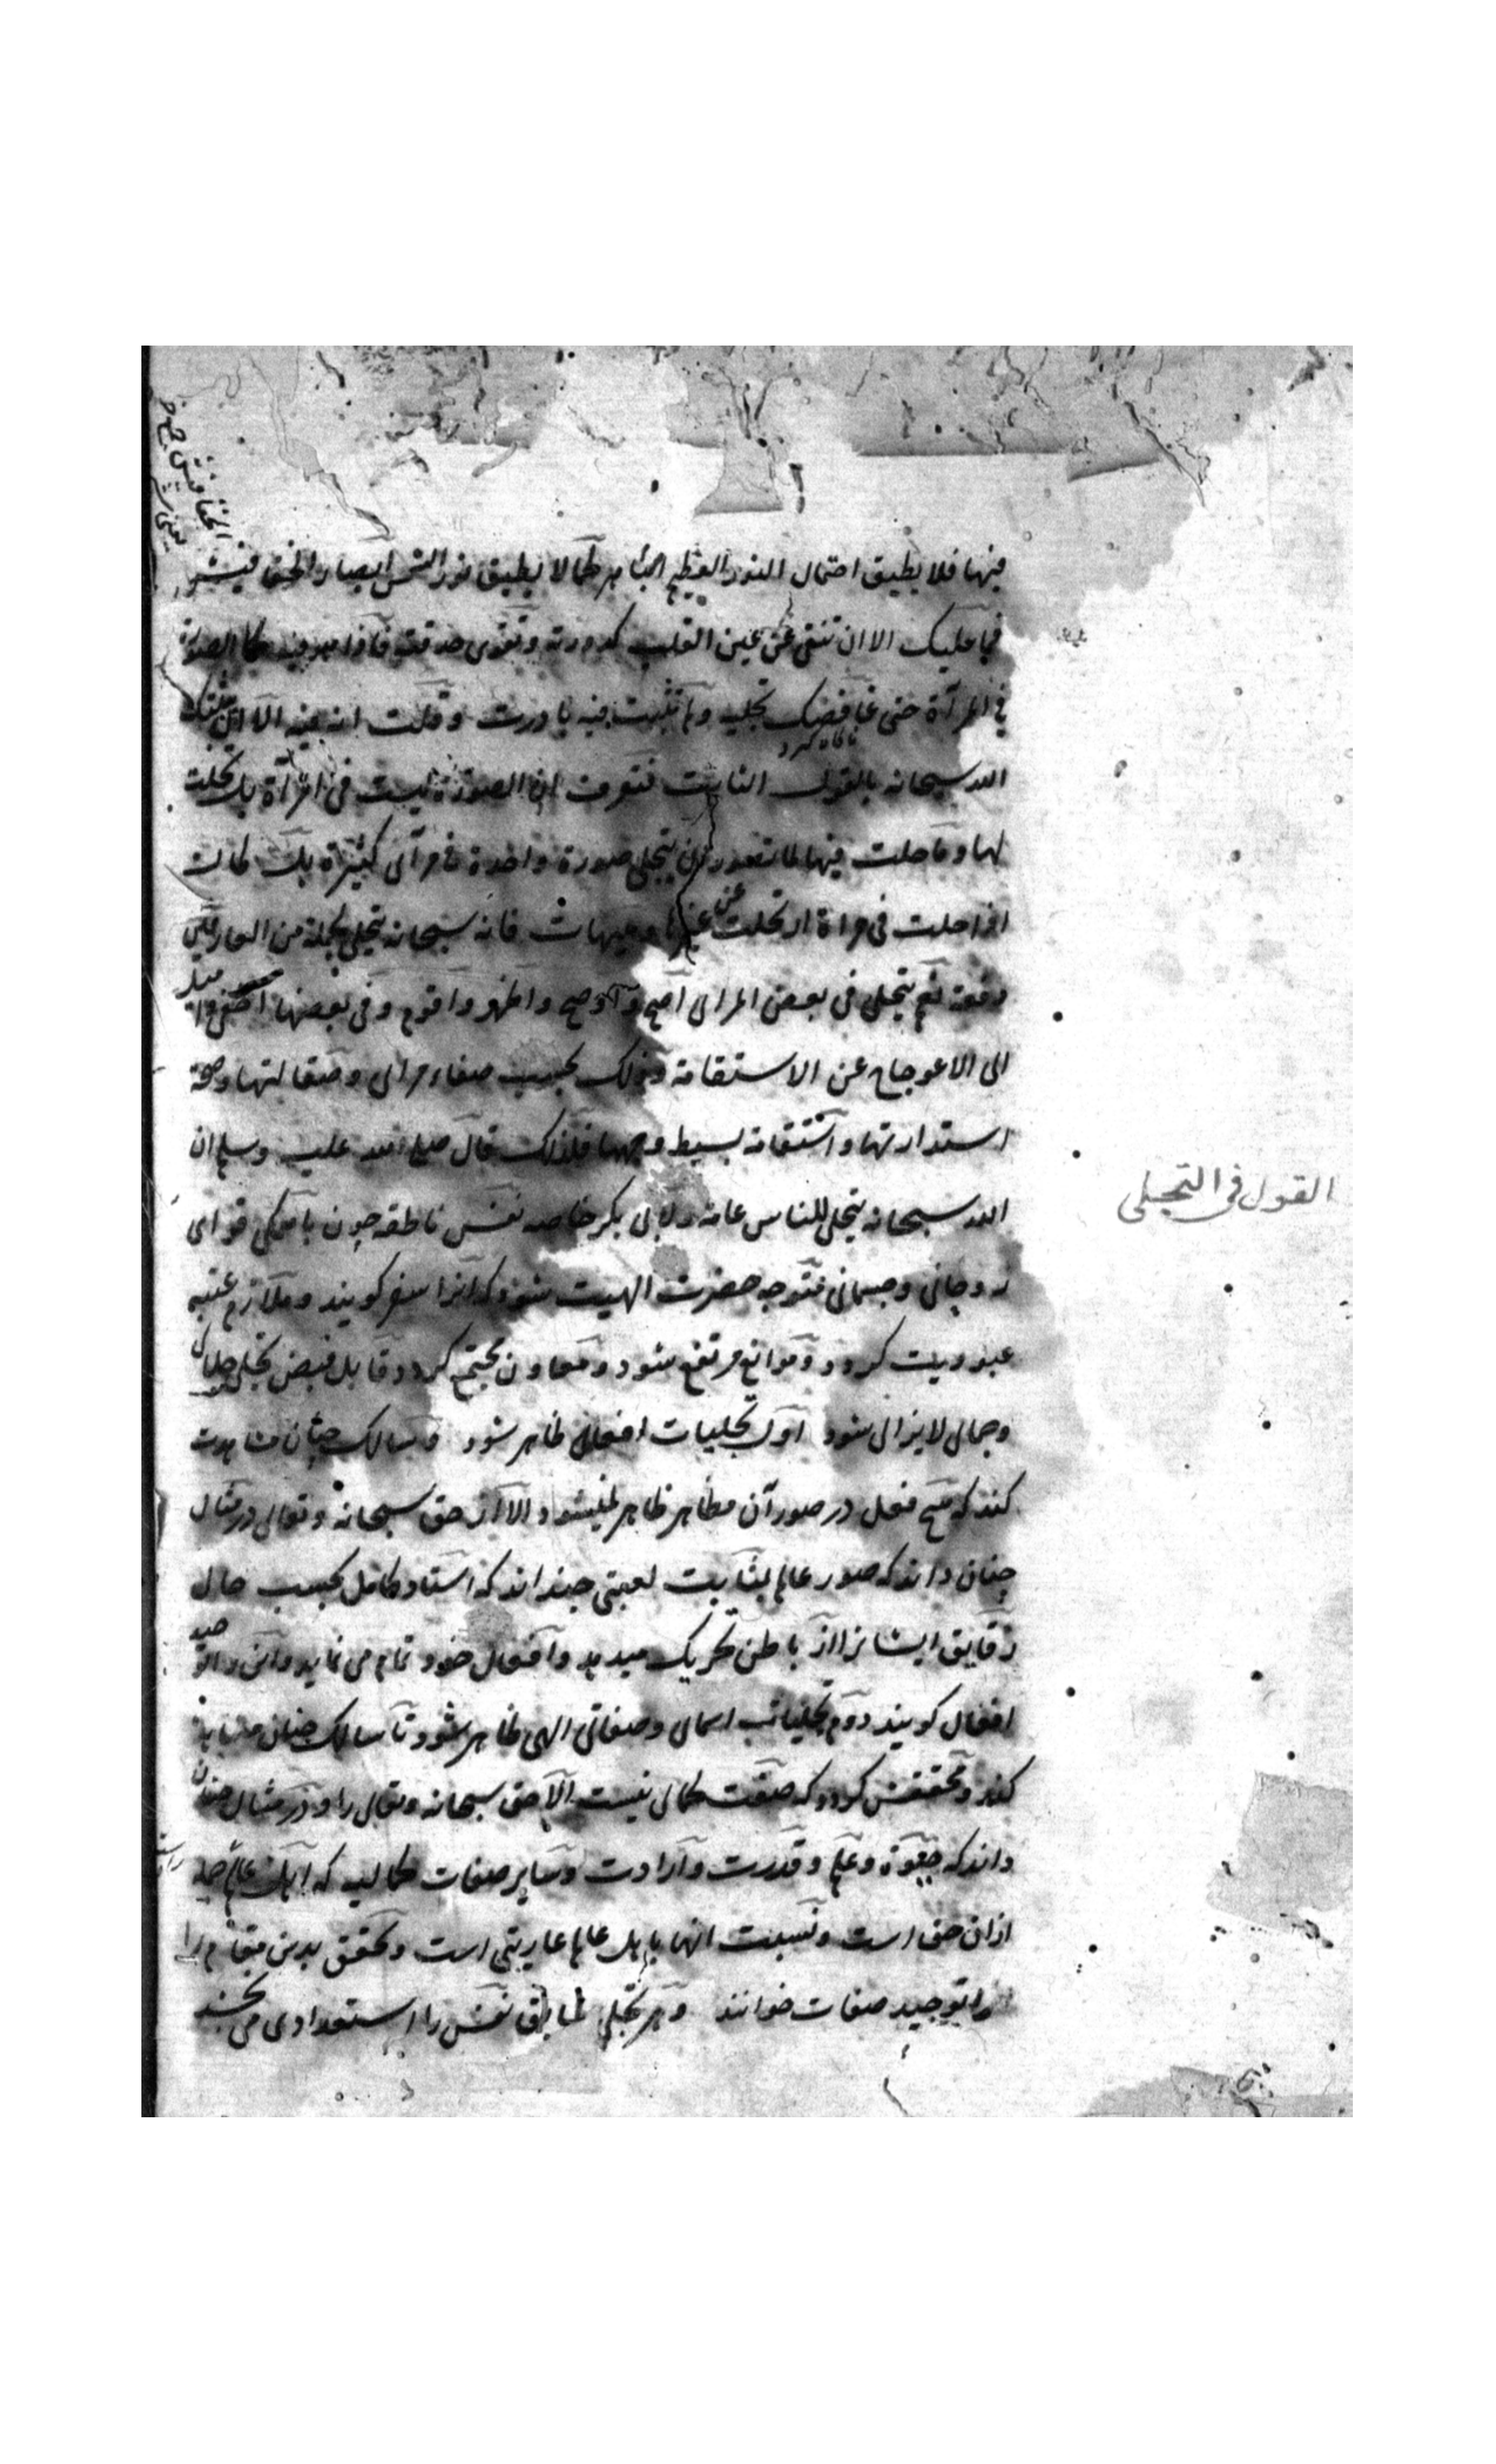 فيها فلا يطيق احتمال النور العظيم الباهر كما لا يطيق نور الشمس ابصار الخفافيش
فما عليك الا ان تنقى عن عين القلب كدورته وتقوى حدقته فاذا هو فيه كالصورة
فى المرآة حتى غافضك تجليه ولم تثبت فيه بادرت وقلت انه فيه الا ان يثبتك
الله سبحانه بالقول الثابت فتعرف ان الصورة ليست فى المرآة بل تجلت
لها وما حلت فيها لما تصور ان يتجلى صورة واحدة فى مرآى كثيرة بل كانت
اذا حلت فى مرآة ارتحلت عن غيرها وهيهات فانه سبحانه يتجلى لجملة من العارفين
دفعة نعم يتجلى فى بعض المراى اصح واوضح واظهر واقوم وفى بعضها اخفى و اميل
الى الاعوجاج عن الاستقامة وذلك بحسب صفاء مراى وصقالتها وصحة
استدارتها واستقامة بسيط وجهها فلذلك قال صلى الله عليه وسلم ان
الله سبحانه يتجلى للناس عامة ولابى بكر خاصه نفس ناطقه چون باملگى قواى
روحانى وجسمانى متوجه حضرت الهيت شود كه آنرا سفر كويند وملازم عتبه
عبوديت كردد و موانع مرتفع شود و معاون مجتمع كردد قابل فيض تجلى جلال
وجمالى لايزالى شود اول تجليات افعالى ظاهر شود وسالك چنان مشاهدت
كند كه هيچ فعل در صور آن مظاهر ظاهر نميشود الا از حق سبحانه وتعالى در مثال
چنان داند كه صور عالم بمثابت لعبتى چند اند كه استاد كامل بحسب حال
رقايق ايشانرا از باطن تحريك ميدهد وافعال خود تمام مى نمايد واين را توحيد
افعال كويند دوم تجليات اسمائى وصفاتى الهى ظاهر شود تا سالك چنان مشاهده
كند و محققش كردد كه صفت كمالى نيست الا حق سبحانه وتعالى را ودر مثال چنان
داند كه حيوة وعلم وقدرت وارادت وساير صفات كماليه كه اهل عالم
از ان حق است ونسبت انها باهل عالم عاريتى است ومحقق بدين مقام را
توحيد صفات خوانند وهر تجلى سابق نفس را استعدادى مى بخشد
القول فى التجلى